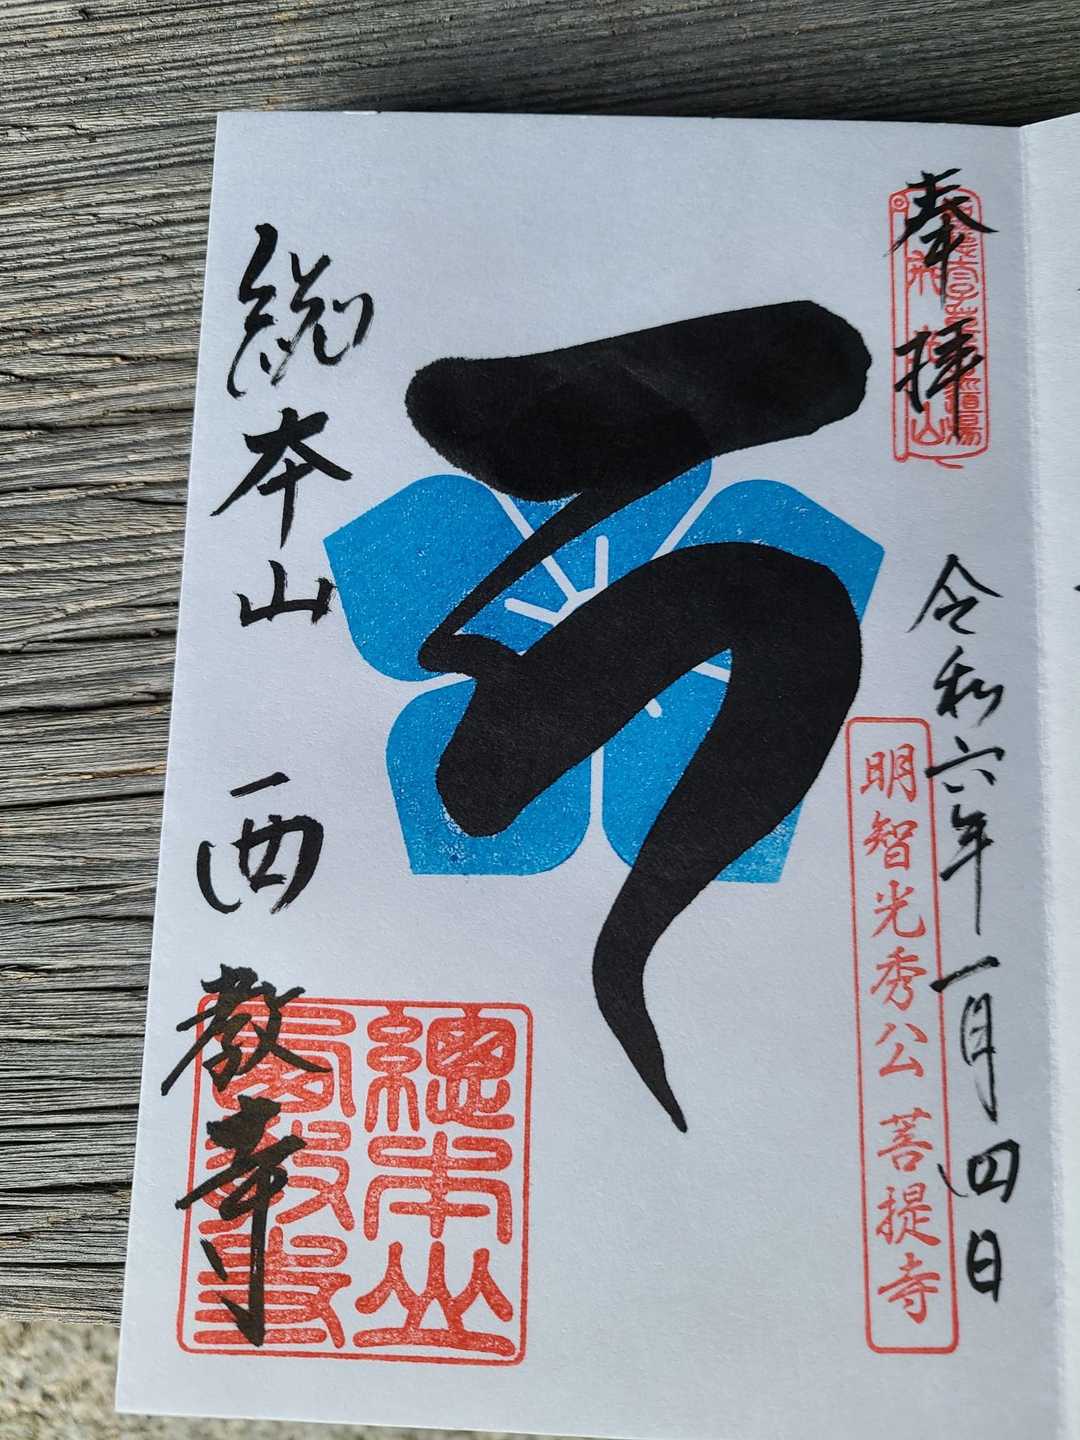 奉拝
令和六年一月四日
明智光秀公 菩提寺
総本山 西教寺
總本山
西教寺